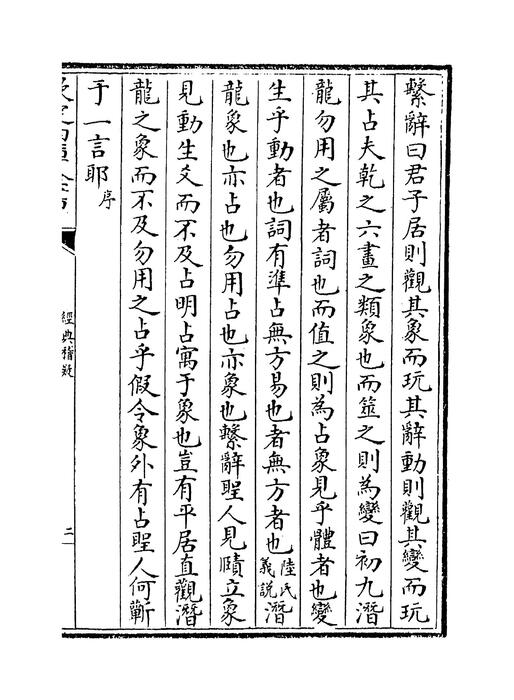 繫辭曰君子居則觀其象而玩其辭動則觀其變而玩
其占夫乾之六畫之類象也而筮之則為變曰初九潛
龍勿用之屬者詞也而值之則為占象見乎體者也變
生乎動者也詞有準占無方易也者無方者也陸氏義說潛
龍象也亦占也勿用占也亦象也繫辭聖人見賾立象
見動生爻而不及占明占寓于象也豈有平居直觀潛
龍之象而不及勿用之占乎假令象外有占聖人何蘄
于一言耶序
經典稽疑
二